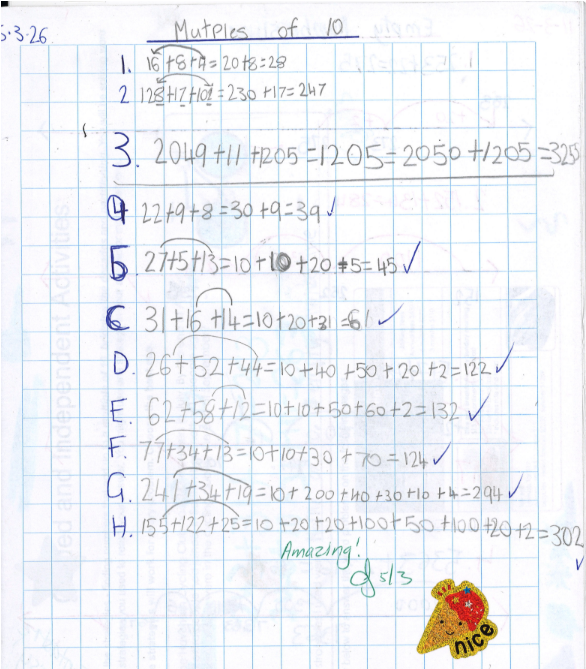 5.3.26
Mutples of 10
1. 16+8+4=20+8=28
2 128+17+102=230+17=247
3. 2049+11+1205=1205=2050+1205=325
4 22+9+8=30+9=39 ✓
5. 27+5+13=10+10+20+5=45 ✓
C 31+16+14=10+20+31=61 ✓
D. 26+52+44=10+40+50+20+2=122 ✓
E. 62+58+12=10+10+50+60+2=132 ✓
F. 77+34+13=10+10+30+70=124 ✓
G. 241+34+19=10+200+40+30+10+4=294 ✓
H. 155+122+25=10+20+20+100+50+100+20+2=302 ✓
Amazing!
5/3
nice